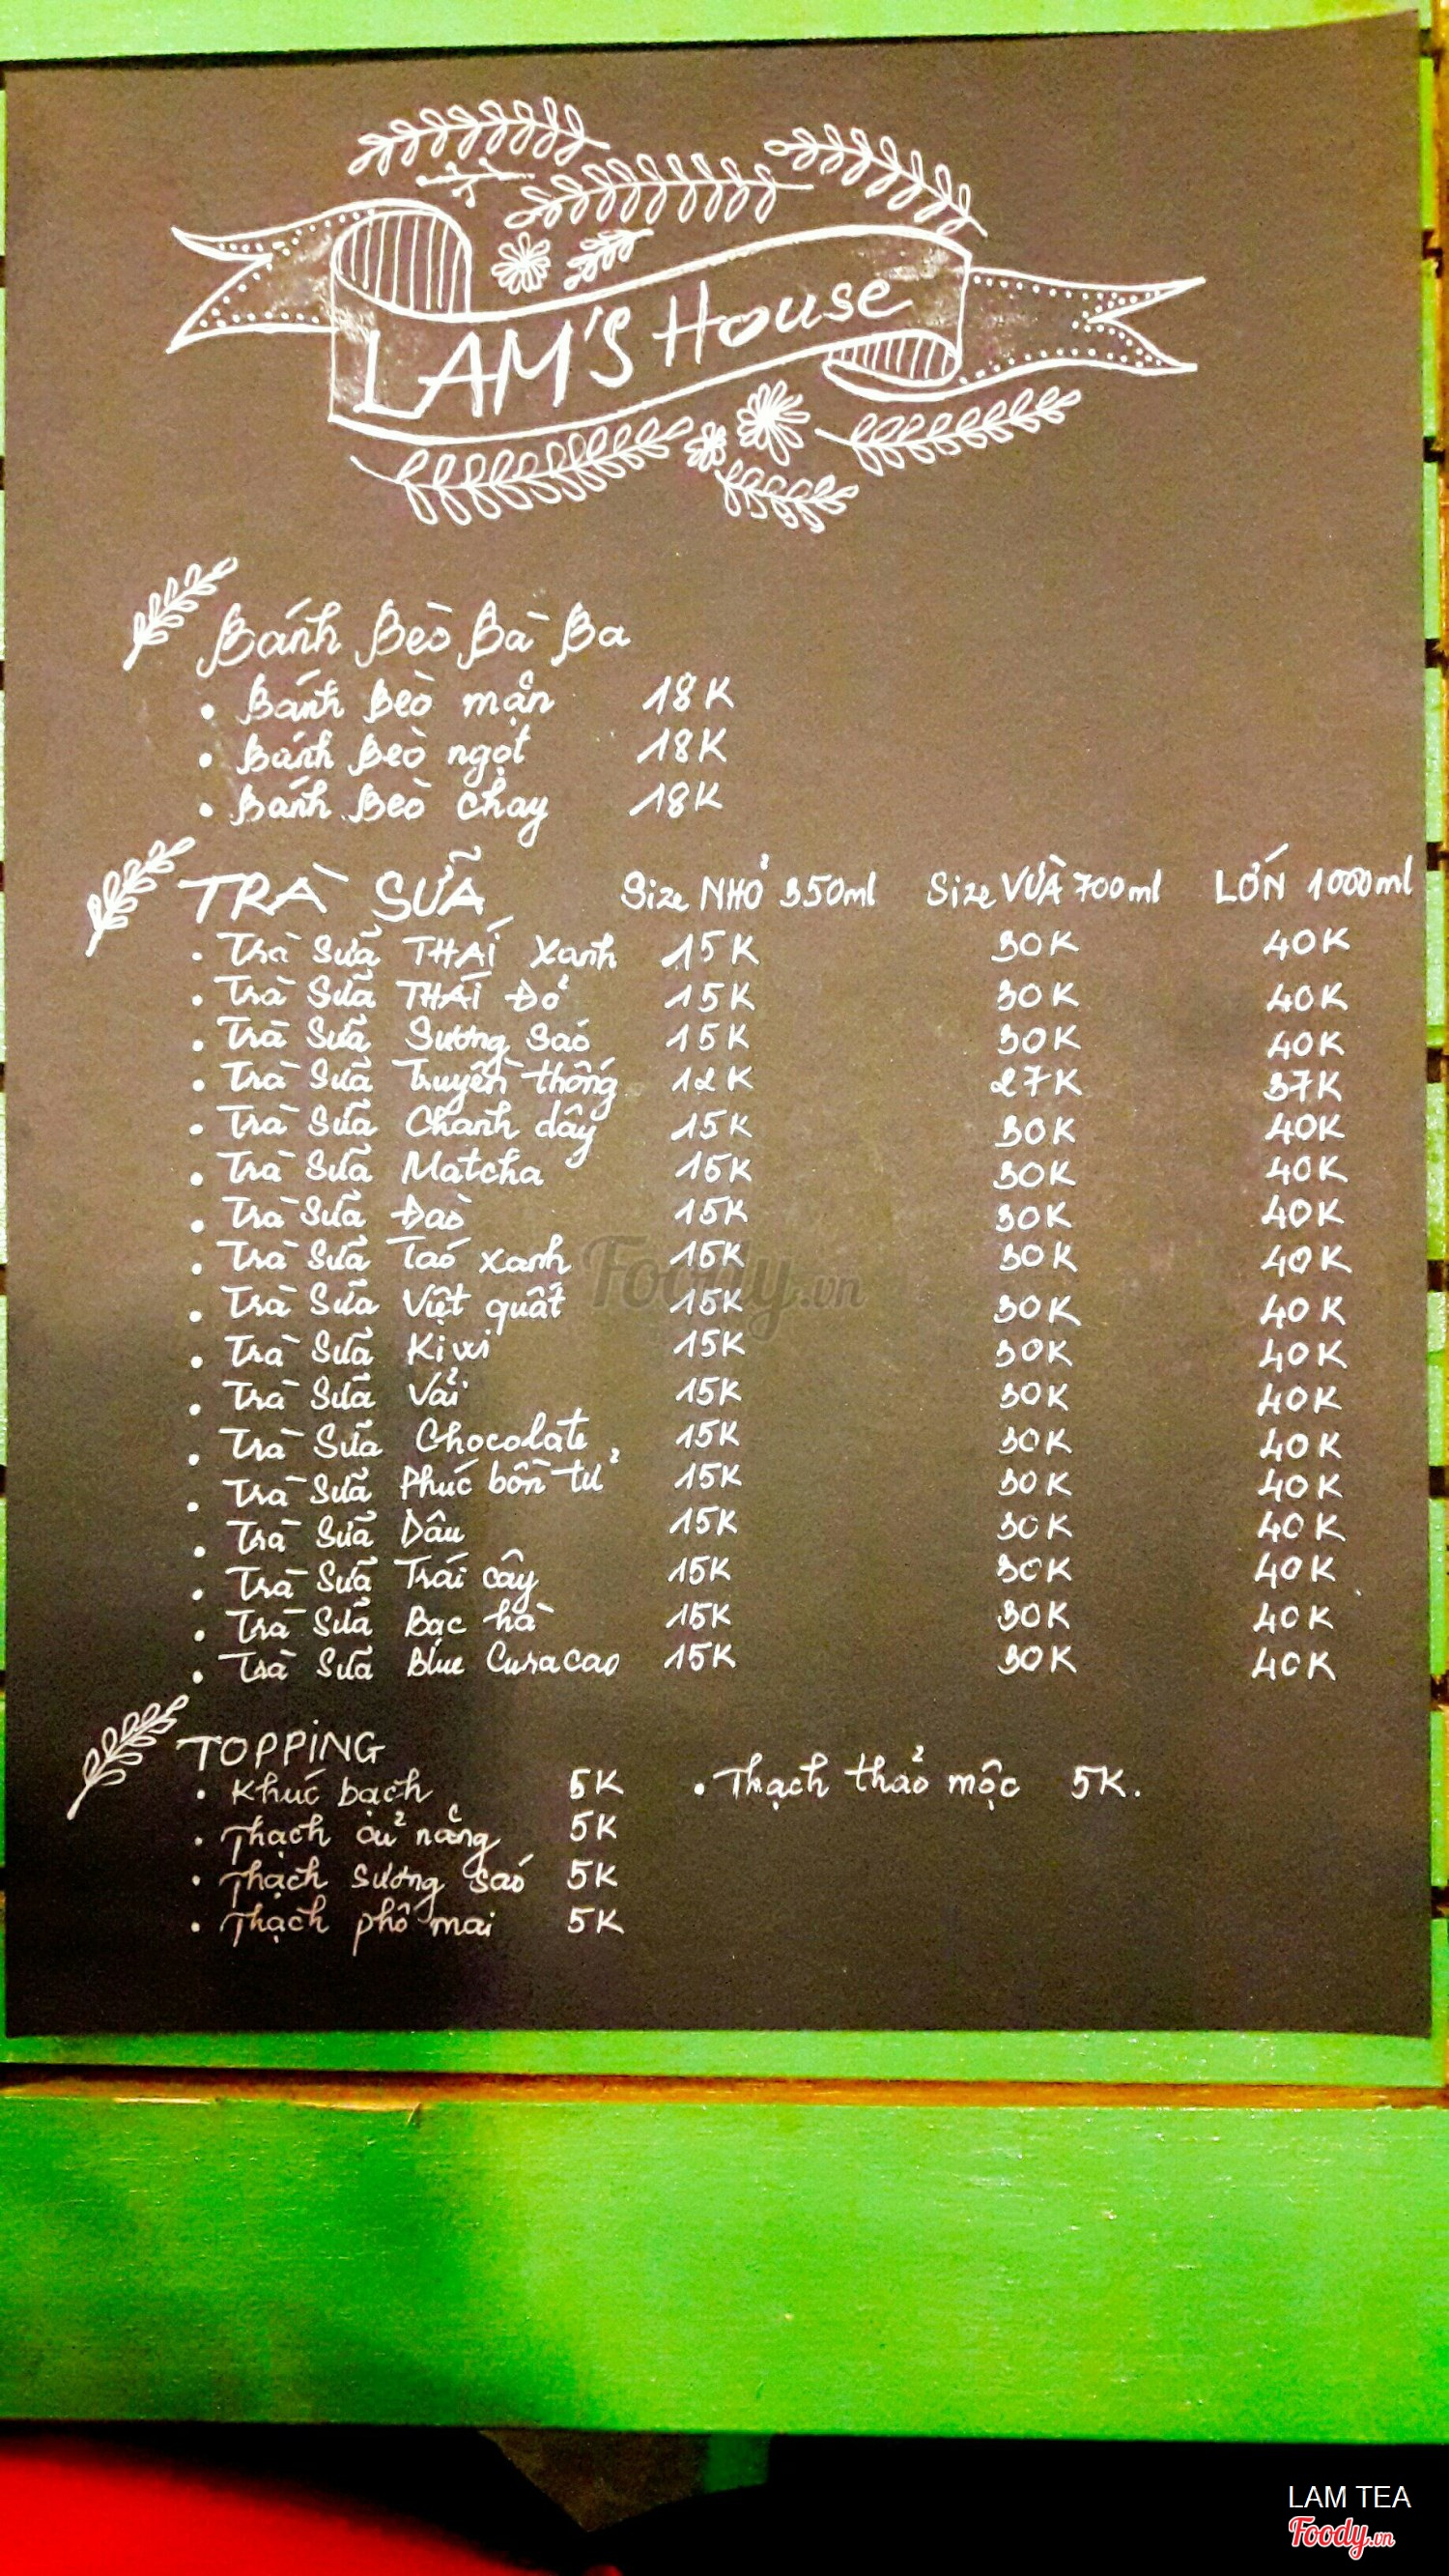 LAM'S House
Bánh Bèo Bà Ba
• Bánh Bèo mặn 18K
• Bánh Bèo ngọt 18K
• Bánh Bèo chay 18K
TRÀ SỮA Size NHỎ 350ml Size VỪA 700ml LỚN 1000ml
• Trà Sữa THÁI Xanh 15K 30K 40K
• Trà Sữa THÁI Đỏ 15K 30K 40K
• Trà Sữa Sương Sáo 15K 30K 40K
• Trà Sữa Truyền thống 12K 27K 37K
• Trà Sữa Chanh dây 15K 30K 40K
• Trà Sữa Matcha 15K 30K 40K
• Trà Sữa Đào 15K 30K 40K
• Trà Sữa Táo xanh 15K 30K 40K
• Trà Sữa Việt quất 15K 30K 40K
• Trà Sữa Kiwi 15K 30K 40K
• Trà Sữa Vải 15K 30K 40K
• Trà Sữa Chocolate 15K 30K 40K
• Trà Sữa Phúc bồn tử 15K 30K 40K
• Trà Sữa Dâu 15K 30K 40K
• Trà Sữa Trái cây 15K 30K 40K
• Trà Sữa Bạc hà 15K 30K 40K
• Trà Sữa Blue Curacao 15K 30K 40K
TOPPING
• Khúc bạch 5K • Thạch thảo mộc 5K.
• Thạch củ năng 5K
• Thạch sương sáo 5K
• Thạch phô mai 5K
Foody.vn
LAM TEA
Foody.vn